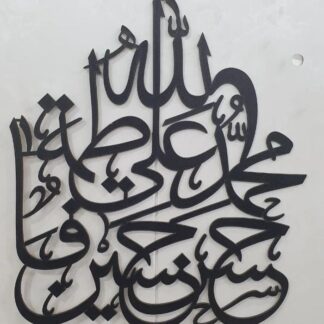 الله
محمد علی فاطمة
حسن حسین